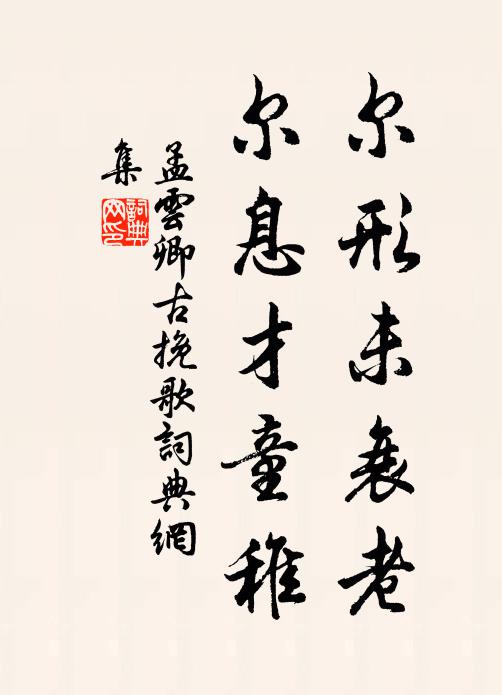 尔形未衰老
尔息才童稚
孟雲卿古挽歌詞典網
集
詞典
网印